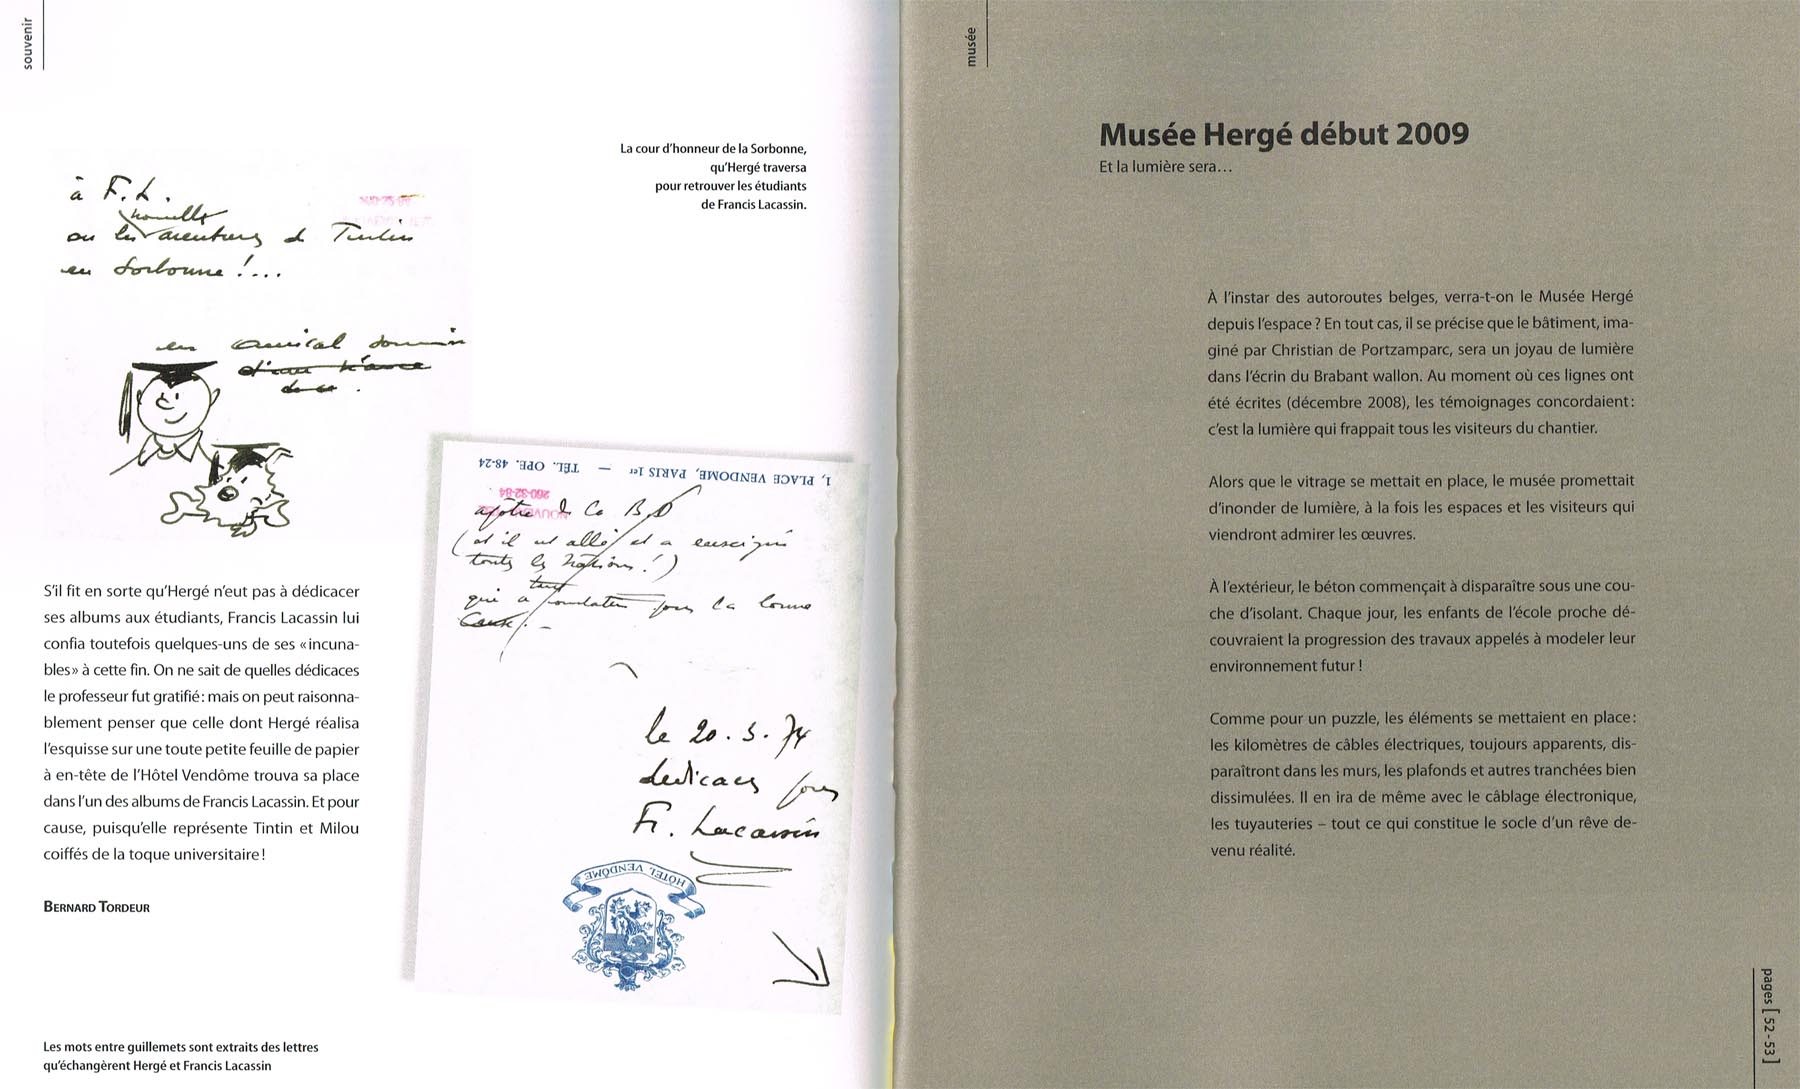 souvenir
La cour d’honneur de la Sorbonne,
qu’Hergé traversa
pour retrouver les étudiants
de Francis Lacassin.
à F. L.
nouvelles
ou les aventures de Tintin
en Sorbonne !...
en amical souvenir
1, PLACE VENDOME, PARIS 1er — TÉL. OPE. 48-24
260-32-84
apôtre de la BD
(et il est allé et a enseigné
toutes les nations !)
qui a pour la bonne
cause. -
le 20.3.74
dédicaces pour
Fr. Lacassin
HOTEL VENDÔME
S’il fit en sorte qu’Hergé n’eut pas à dédicacer
ses albums aux étudiants, Francis Lacassin lui
confia toutefois quelques-uns de ses «incuna-
bles» à cette fin. On ne sait de quelles dédicaces
le professeur fut gratifié : mais on peut raisonna-
blement penser que celle dont Hergé réalisa
l’esquisse sur une toute petite feuille de papier
à en-tête de l’Hôtel Vendôme trouva sa place
dans l’un des albums de Francis Lacassin. Et pour
cause, puisqu’elle représente Tintin et Milou
coiffés de la toque universitaire !
BERNARD TORDEUR
Les mots entre guillemets sont extraits des lettres
qu’échangèrent Hergé et Francis Lacassin
musée
Musée Hergé début 2009
Et la lumière sera…
À l’instar des autoroutes belges, verra-t-on le Musée Hergé
depuis l’espace ? En tout cas, il se précise que le bâtiment, ima-
giné par Christian de Portzamparc, sera un joyau de lumière
dans l’écrin du Brabant wallon. Au moment où ces lignes ont
été écrites (décembre 2008), les témoignages concordaient :
c’est la lumière qui frappait tous les visiteurs du chantier.
Alors que le vitrage se mettait en place, le musée promettait
d’inonder de lumière, à la fois les espaces et les visiteurs qui
viendront admirer les œuvres.
À l’extérieur, le béton commençait à disparaître sous une cou-
che d’isolant. Chaque jour, les enfants de l’école proche dé-
couvraient la progression des travaux appelés à modeler leur
environnement futur !
Comme pour un puzzle, les éléments se mettaient en place :
les kilomètres de câbles électriques, toujours apparents, dis-
paraîtront dans les murs, les plafonds et autres tranchées bien
dissimulées. Il en ira de même avec le câblage électronique,
les tuyauteries – tout ce qui constitue le socle d’un rêve de-
venu réalité.
pages [ 52 - 53 ]